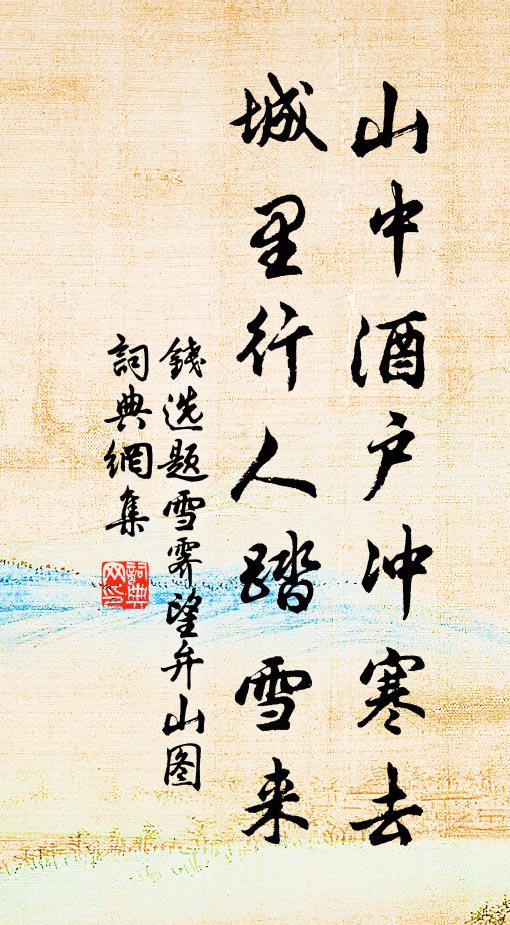 山中酒户冲寒去
城里行人踏雪来
錢选题雪霁望弁山图
詞典網集
詞典网印